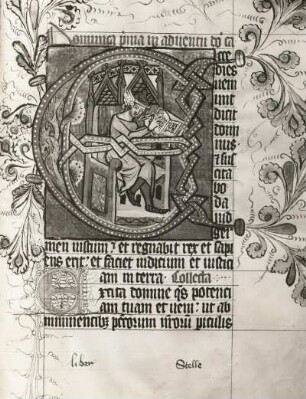 Dominica prima in aduentu do ca
E cce
dies
ueni
unt
dicit
domi
nus
⁊ sus
cita
bo
da
uid
ger
men iustum ⁊ et regnabit rex et sapi
ens erit: et faciet iudicium et iustici
am in terra Collecta
Excita domine qs potenci
am tuam et ueni: ut ab
imminentibꝫ peccatorum nostrorum periculis
liber Stelle